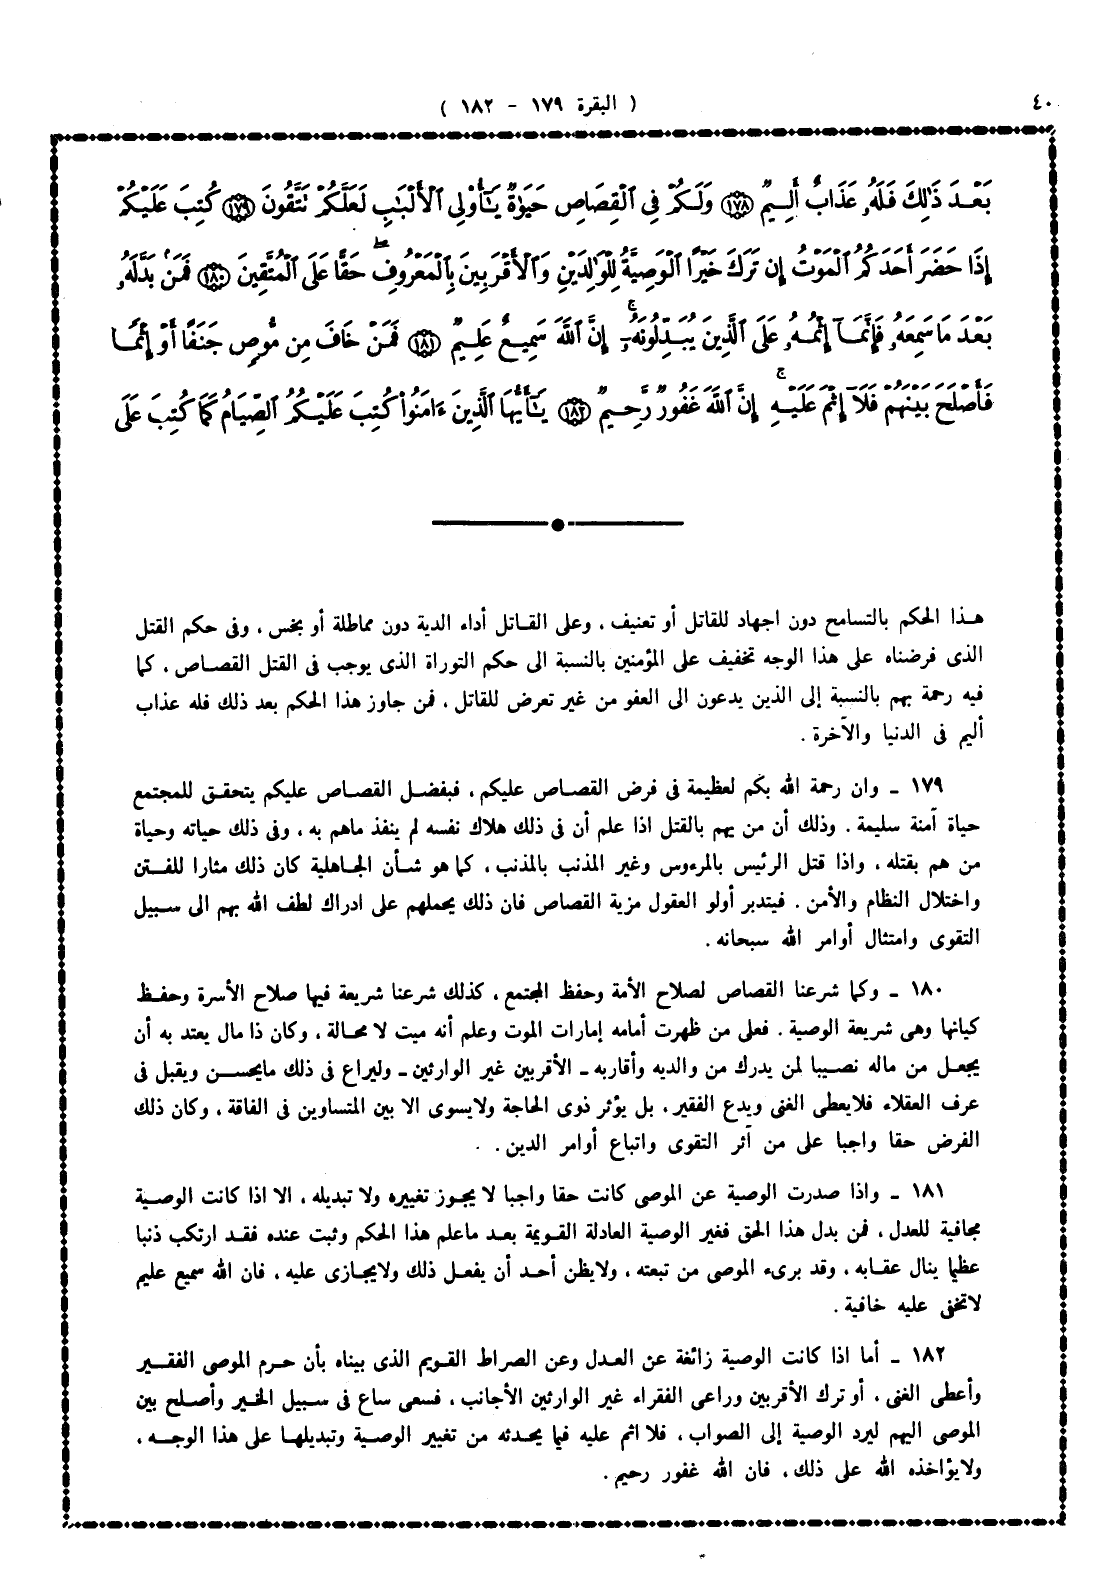 ٤٠
( البقرة ١٧٩ - ١٨٢ )
بَعْدَ ذَٰلِكَ فَلَهُۥ عَذَابٌ أَلِيمٌ ﴿١٧٨﴾ وَلَكُمْ فِى ٱلْقِصَاصِ حَيَوٰةٌ يَـٰٓأُو۟لِى ٱلْأَلْبَـٰبِ لَعَلَّكُمْ تَتَّقُونَ ﴿١٧٩﴾ كُتِبَ عَلَيْكُمْ
إِذَا حَضَرَ أَحَدَكُمُ ٱلْمَوْتُ إِن تَرَكَ خَيْرًا ٱلْوَصِيَّةُ لِلْوَٰلِدَيْنِ وَٱلْأَقْرَبِينَ بِٱلْمَعْرُوفِ ۖ حَقًّا عَلَى ٱلْمُتَّقِينَ ﴿١٨٠﴾ فَمَنۢ بَدَّلَهُۥ
بَعْدَ مَا سَمِعَهُۥ فَإِنَّمَآ إِثْمُهُۥ عَلَى ٱلَّذِينَ يُبَدِّلُونَهُۥٓ ۚ إِنَّ ٱللَّهَ سَمِيعٌ عَلِيمٌ ﴿١٨١﴾ فَمَنْ خَافَ مِن مُّوصٍ جَنَفًا أَوْ إِثْمًا
فَأَصْلَحَ بَيْنَهُمْ فَلَآ إِثْمَ عَلَيْهِ ۚ إِنَّ ٱللَّهَ غَفُورٌ رَّحِيمٌ ﴿١٨٢﴾ يَـٰٓأَيُّهَا ٱلَّذِينَ ءَامَنُوا۟ كُتِبَ عَلَيْكُمُ ٱلصِّيَامُ كَمَا كُتِبَ عَلَى
هذا الحكم بالتسامح دون اجهاد للقاتل أو تعنيف ، وعلى القاتل أداء الدية دون مماطلة أو بخس ، وفى حكم القتل
الذى فرضناه على هذا الوجه تخفيف على المؤمنين بالنسبة الى حكم التوراة الذى يوجب فى القتل القصاص ، كما
فيه رحمة بهم بالنسبة إلى الذين يدعون الى العفو من غير تعرض للقاتل ، فمن جاوز هذا الحكم بعد ذلك فله عذاب
أليم فى الدنيا والآخرة .
١٧٩ ـ وان رحمة الله بكم لعظيمة فى فرض القصاص عليكم ، فبفضل القصاص عليكم يتحقق للمجتمع
حياة آمنة سليمة . وذلك أن من يهم بالقتل اذا علم أن فى ذلك هلاك نفسه لم ينفذ ماهم به ، وفى ذلك حياته وحياة
من هم بقتله ، واذا قتل الرئيس بالمرءوس وغير المذنب بالمذنب ، كما هو شأن الجاهلية كان ذلك مثارا للفتن
واختلال النظام والأمن . فيتدبر أولو العقول مزية القصاص فان ذلك يحملهم على ادراك لطف الله بهم الى سبيل
التقوى وامتثال أوامر الله سبحانه .
١٨٠ ـ وكما شرعنا القصاص لصلاح الأمة وحفظ المجتمع ، كذلك شرعنا شريعة فيها صلاح الأسرة وحفظ
كيانها وهى شريعة الوصية . فعلى من ظهرت أمامه إمارات الموت وعلم أنه ميت لا محالة ، وكان ذا مال يعتد به أن
يجعل من ماله نصيبا لمن يدرك من والديه وأقاربه ـ الأقربين غير الوارثين ـ وليراع فى ذلك مايحسن ويقبل فى
عرف العقلاء فلايعطى الغنى ويدع الفقير ، بل يؤثر ذوى الحاجة ولايسوى الا بين المتساوين فى الفاقة ، وكان ذلك
الفرض حقا واجبا على من آثر التقوى واتباع أوامر الدين .
١٨١ ـ واذا صدرت الوصية عن الموصى كانت حقا واجبا لا يجوز تغييره ولا تبديله ، الا اذا كانت الوصية
مجافية للعدل ، فمن بدل هذا الحق فغير الوصية العادلة القويمة بعد ماعلم هذا الحكم وثبت عنده فقد ارتكب ذنبا
عظيما ينال عقابه ، وقد برىء الموصى من تبعته ، ولايظن أحد أن يفعل ذلك ولايجازى عليه ، فان الله سميع عليم
لاتخفى عليه خافية .
١٨٢ ـ أما اذا كانت الوصية زائغة عن العدل وعن الصراط القويم الذى بيناه بأن حرم الموصى الفقير
وأعطى الغنى ، أو ترك الأقربين وراعى الفقراء غير الوارثين الأجانب ، فسعى ساع فى سبيل الخير وأصلح بين
الموصى اليهم ليرد الوصية إلى الصواب ، فلا اثم عليه فيما يحدثه من تغيير الوصية وتبديلها على هذا الوجه ،
ولايؤاخذه الله على ذلك ، فان الله غفور رحيم .